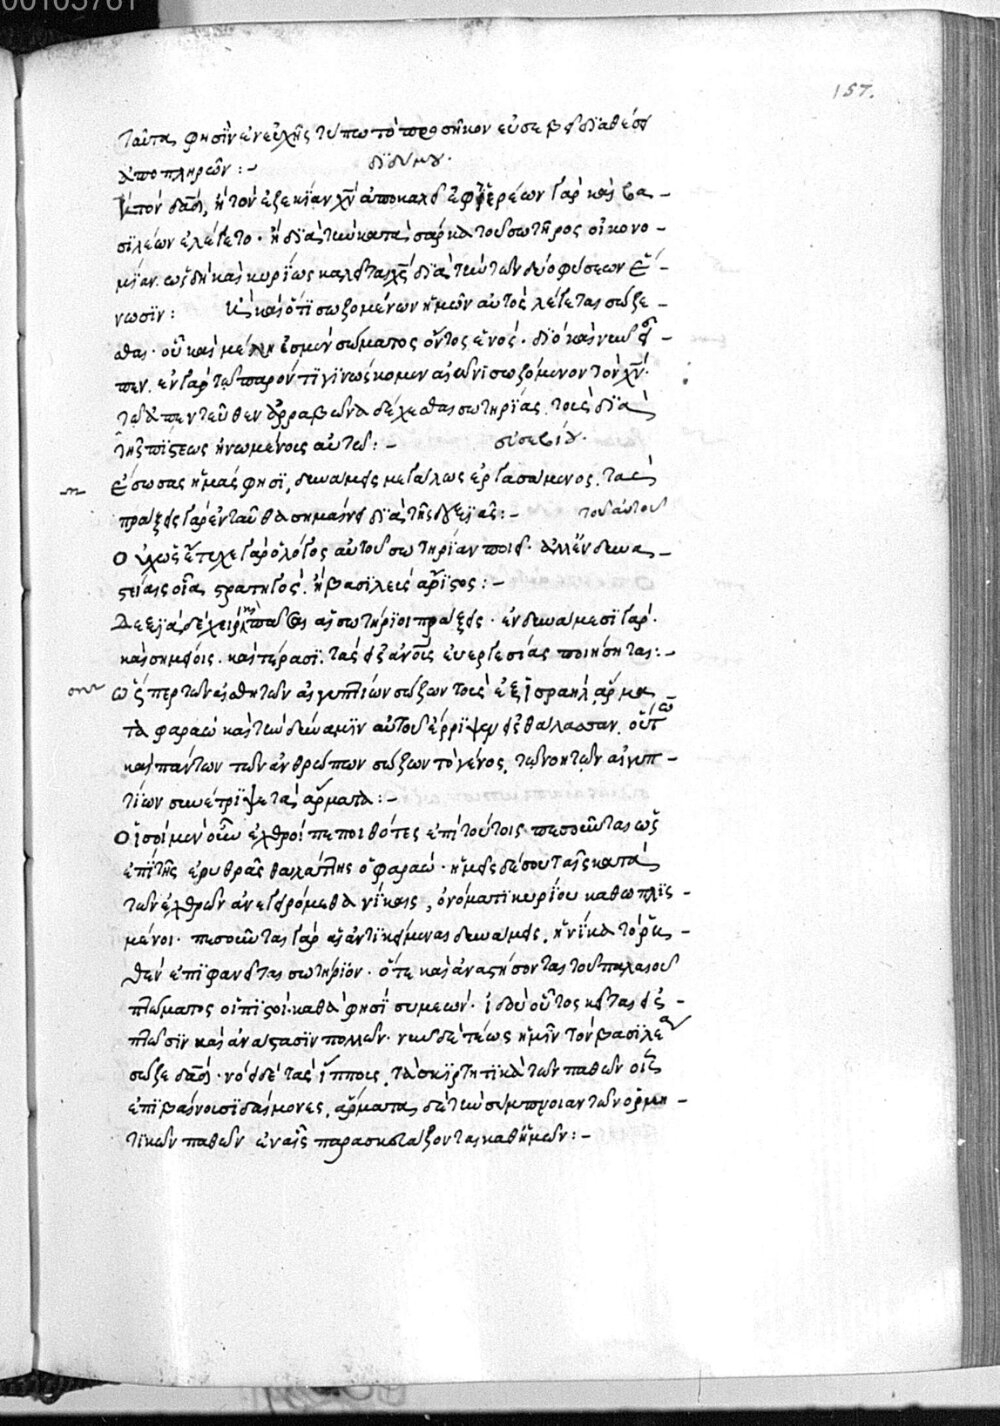 00105761
157.
ταῦτα φησὶν ἐν εὐχῆς τύπω τὸ προσῆκον εὐσεβεῖ διαθέσει
ἀποπληρῶν :- διδύμου.
ἤτοι τὸν δαδ, ἢ τὸν ἐξεκίαν χν ἀποκαλεῖ ἐφ ἱερέων γὰρ καὶ βα-
σιλέων ἐλέγετο· ἢ διὰ τὴν κατὰ σάρκα τοῦ σωτῆρος οἰκονο-
μίαν. ὡς ἤδη καὶ κυρίως καλεῖται χς διὰ τὴν τῶν δύο φύσεων ἕ-
νωσιν : καὶ ὅτι σωζομένων ἡμῶν αὐτὸς λέγεται σώζε-
σθαι· οὗ καὶ μέλη ἐσμὲν σώματος ὄντος ἑνός· διὸ καὶ νῦν εἶ-
πεν. ἐν γὰρ τῶ παρόντι γινώσκομεν αἰῶνι σωζόμενον τὸν χν·
τῶ ἀπεντεῦθεν ἀρραβῶνα δέχεσθαι σωτηρίας, τοὺς διὰ
τῆς πίστεως ἡνωμένους αὐτῶ :- εὐσεβίου.
ἔσωσας ἡμᾶς φησι, δυνάμεις μεγάλως ἐργασάμενος. τὰς
πράξεις γὰρ ἐνταῦθα σημαίνει διὰ τῆς δεξιᾶς :- τοῦ αὐτοῦ
ὁ λόγος αὐτοῦ σωτηρίαν ποιεῖ· ἀλλ' ἐν δυνα-
στείαις οἷα στρατηγὸς. ἢ βασιλεὺς ἄριστος :-
Δεξιὰ δὲ χειρὸς πᾶσαι αἱ σωτήριοι πράξεις· ἐν δυνάμεσι γὰρ.
καὶ σημείοις. καὶ τέρασι. τὰς εἰς ἀνους εὐεργεσίας ποιήσηται :-
ὥσπερ τῶν αἰσθητῶν αἰγυπτίων σώζων τοὺς ἐξ ἰσραηλ ἅρμα-
τα φαραὼ καὶ τὴν δύναμιν αὐτοῦ ἔρριψεν εἰς θάλασσαν. οὕτω
καὶ πάντων τῶν ἀνθρώπων σώζων τὸ γένος, τῶν νοητῶν αἰγυπ-
τίων συνέτριψε τὰ ἅρματα :-
Οἱ μὲν οὖν ἐχθροὶ πεποιθότες ἐπὶ τούτοις πεσοῦνται ὡς
ἐπὶ τῆς ἐρυθρᾶς θαλάττης ὁ φαραώ· ἡμεῖς δὲ σου ταῖς κατὰ
τῶν ἐχθρῶν ἀνεγειρόμεθα νίκαις, ὀνόματι κυρίου καθωπλισ-
μένοι· πεσοῦνται γὰρ αἱ ἀντικείμεναι δυνάμεις, ἡνίκα τὸ
θεν ἐπιφανεῖται σωτήριον. ὅτε καὶ ἀναστήσονται τοῦ παλαιοῦ
πτώματος οἱ πιστοί. καθά φησι συμεών· ἰδοὺ οὗτος κεῖται εἰς
πτῶσιν καὶ ἀνάστασιν πολλῶν. νῦν δὲ τέως ἡμῖν τὸν βασιλέα
σῶζε δαδ· νόει δὲ τὰς ἵππους, τὰ σκιρτητικὰ τῶν παθῶν οἷς
ἐπιβαίνουσι δαίμονες, ἅρματα δὲ τὴν σύμπνοιαν τῶν ὁρμη-
τικῶν παθῶν ἐν αἷς παρασκευάζονται καθ' ἡμῶν :-